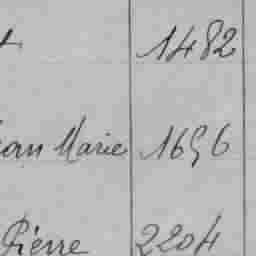 1482
Marie 1656
Pierre 2204